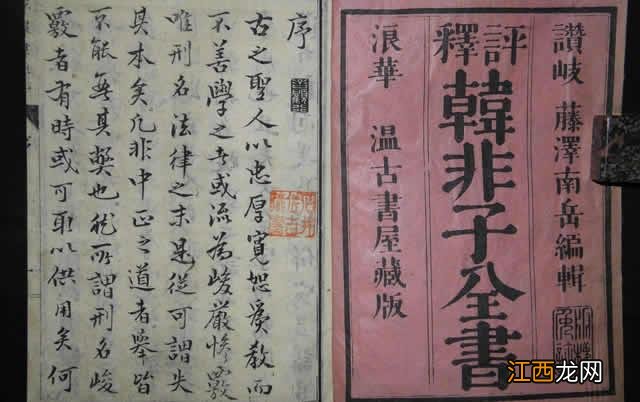 讚岐 藤澤南岳編輯
評釋
韓非子全書
浪華 温古書屋藏版
序
古之聖人以忠厚寛恕爲教而
不善學之者或流為峻嚴慘覈
唯刑名法律之末是從可謂失
其本矣凡非中正之道者皆
不能無其弊也然所謂刑名峻
覈者有時或可取以供用矣何
江西龙网